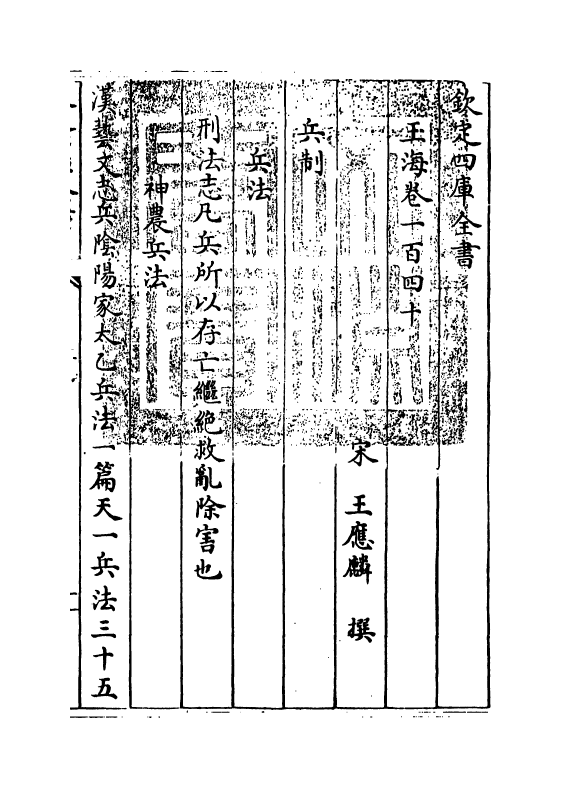 欽定四庫全書
玉海卷一百四十
宋 王應麟 撰
兵制
兵法
刑法志凡兵所以存亡繼絶救亂除害也
神農兵法
漢藝文志兵陰陽家太乙兵法一篇天一兵法三十五